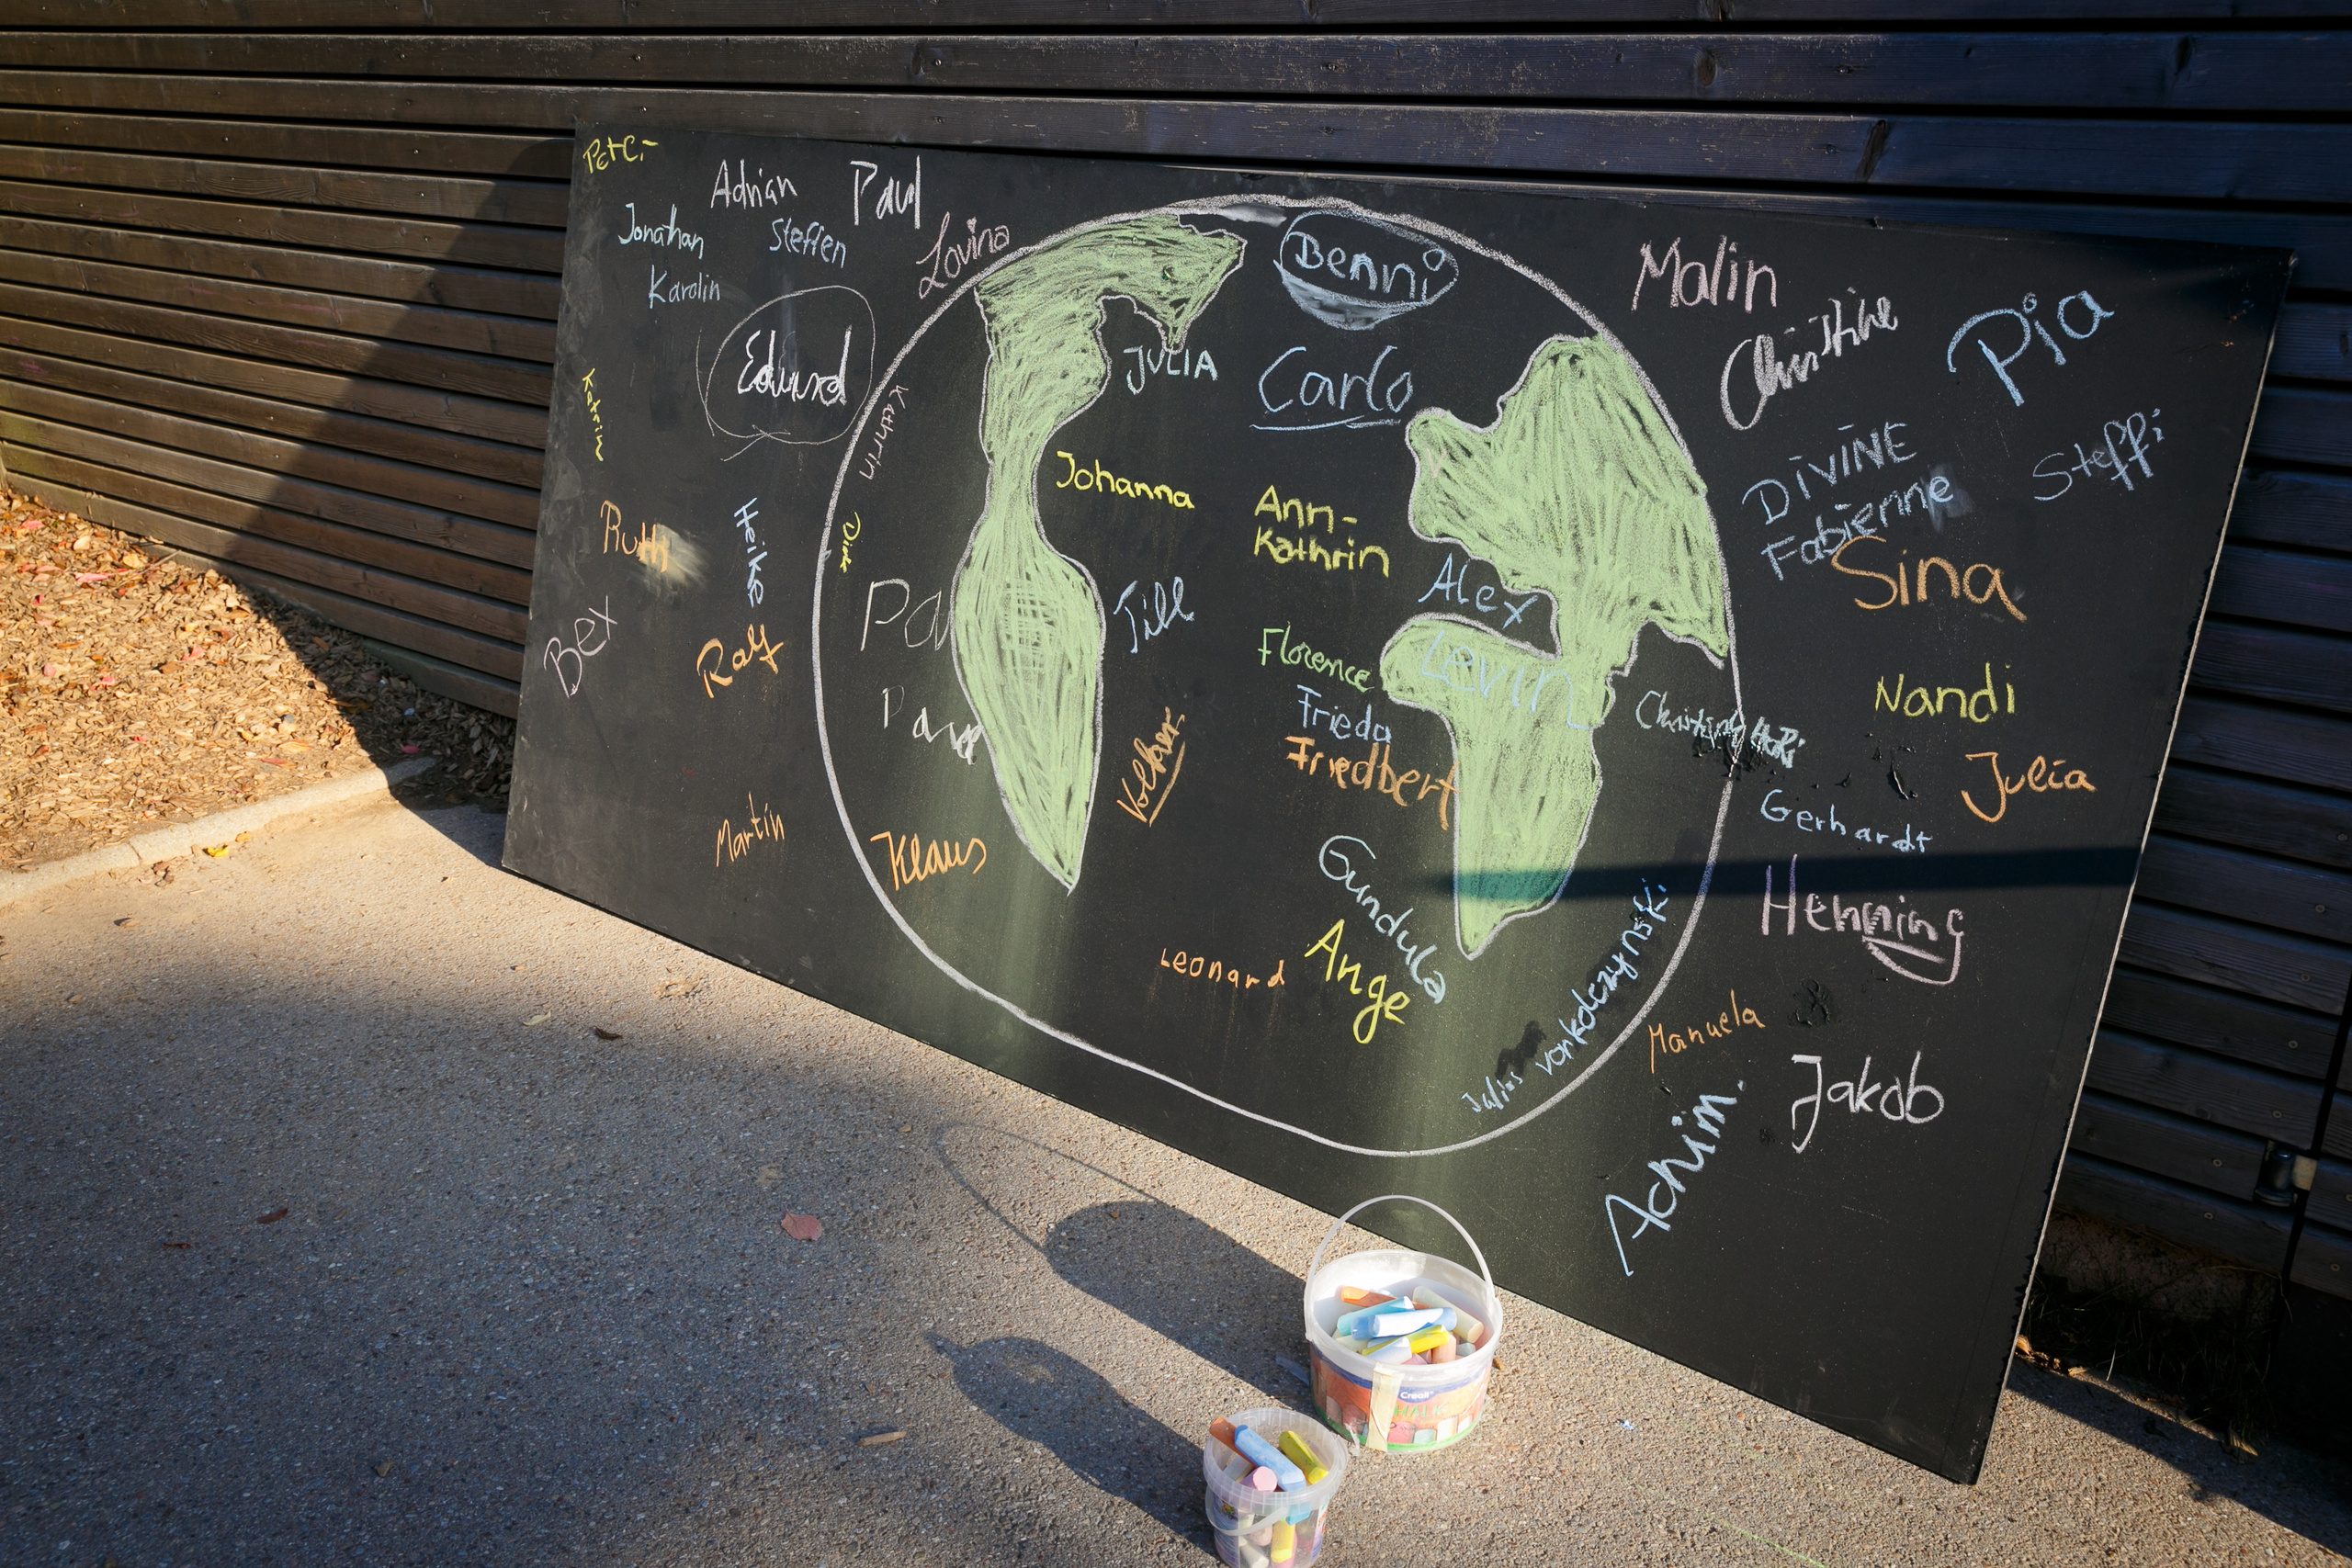 Peter
Adrian
Paul
Jonathan
Steffen
Lovina
Karolin
Eduard
Benni
JULIA
Carlo
Malin
Christine
Pia
Steffi
DiViNE
Fabienne
Sina
Katrin
Kathrin
Johanna
Ann-
Kathrin
Ruth
Heike
Alex
Till
Bex
Ralf
Florence
Levin
Frieda
Friedbert
Volker
Nandi
Julia
Martin
Klaus
Gerhardt
Gundula
Henning
Leonard
Ange
Julius von Kolczynski
Manuela
Jakob
Achim.
Creall